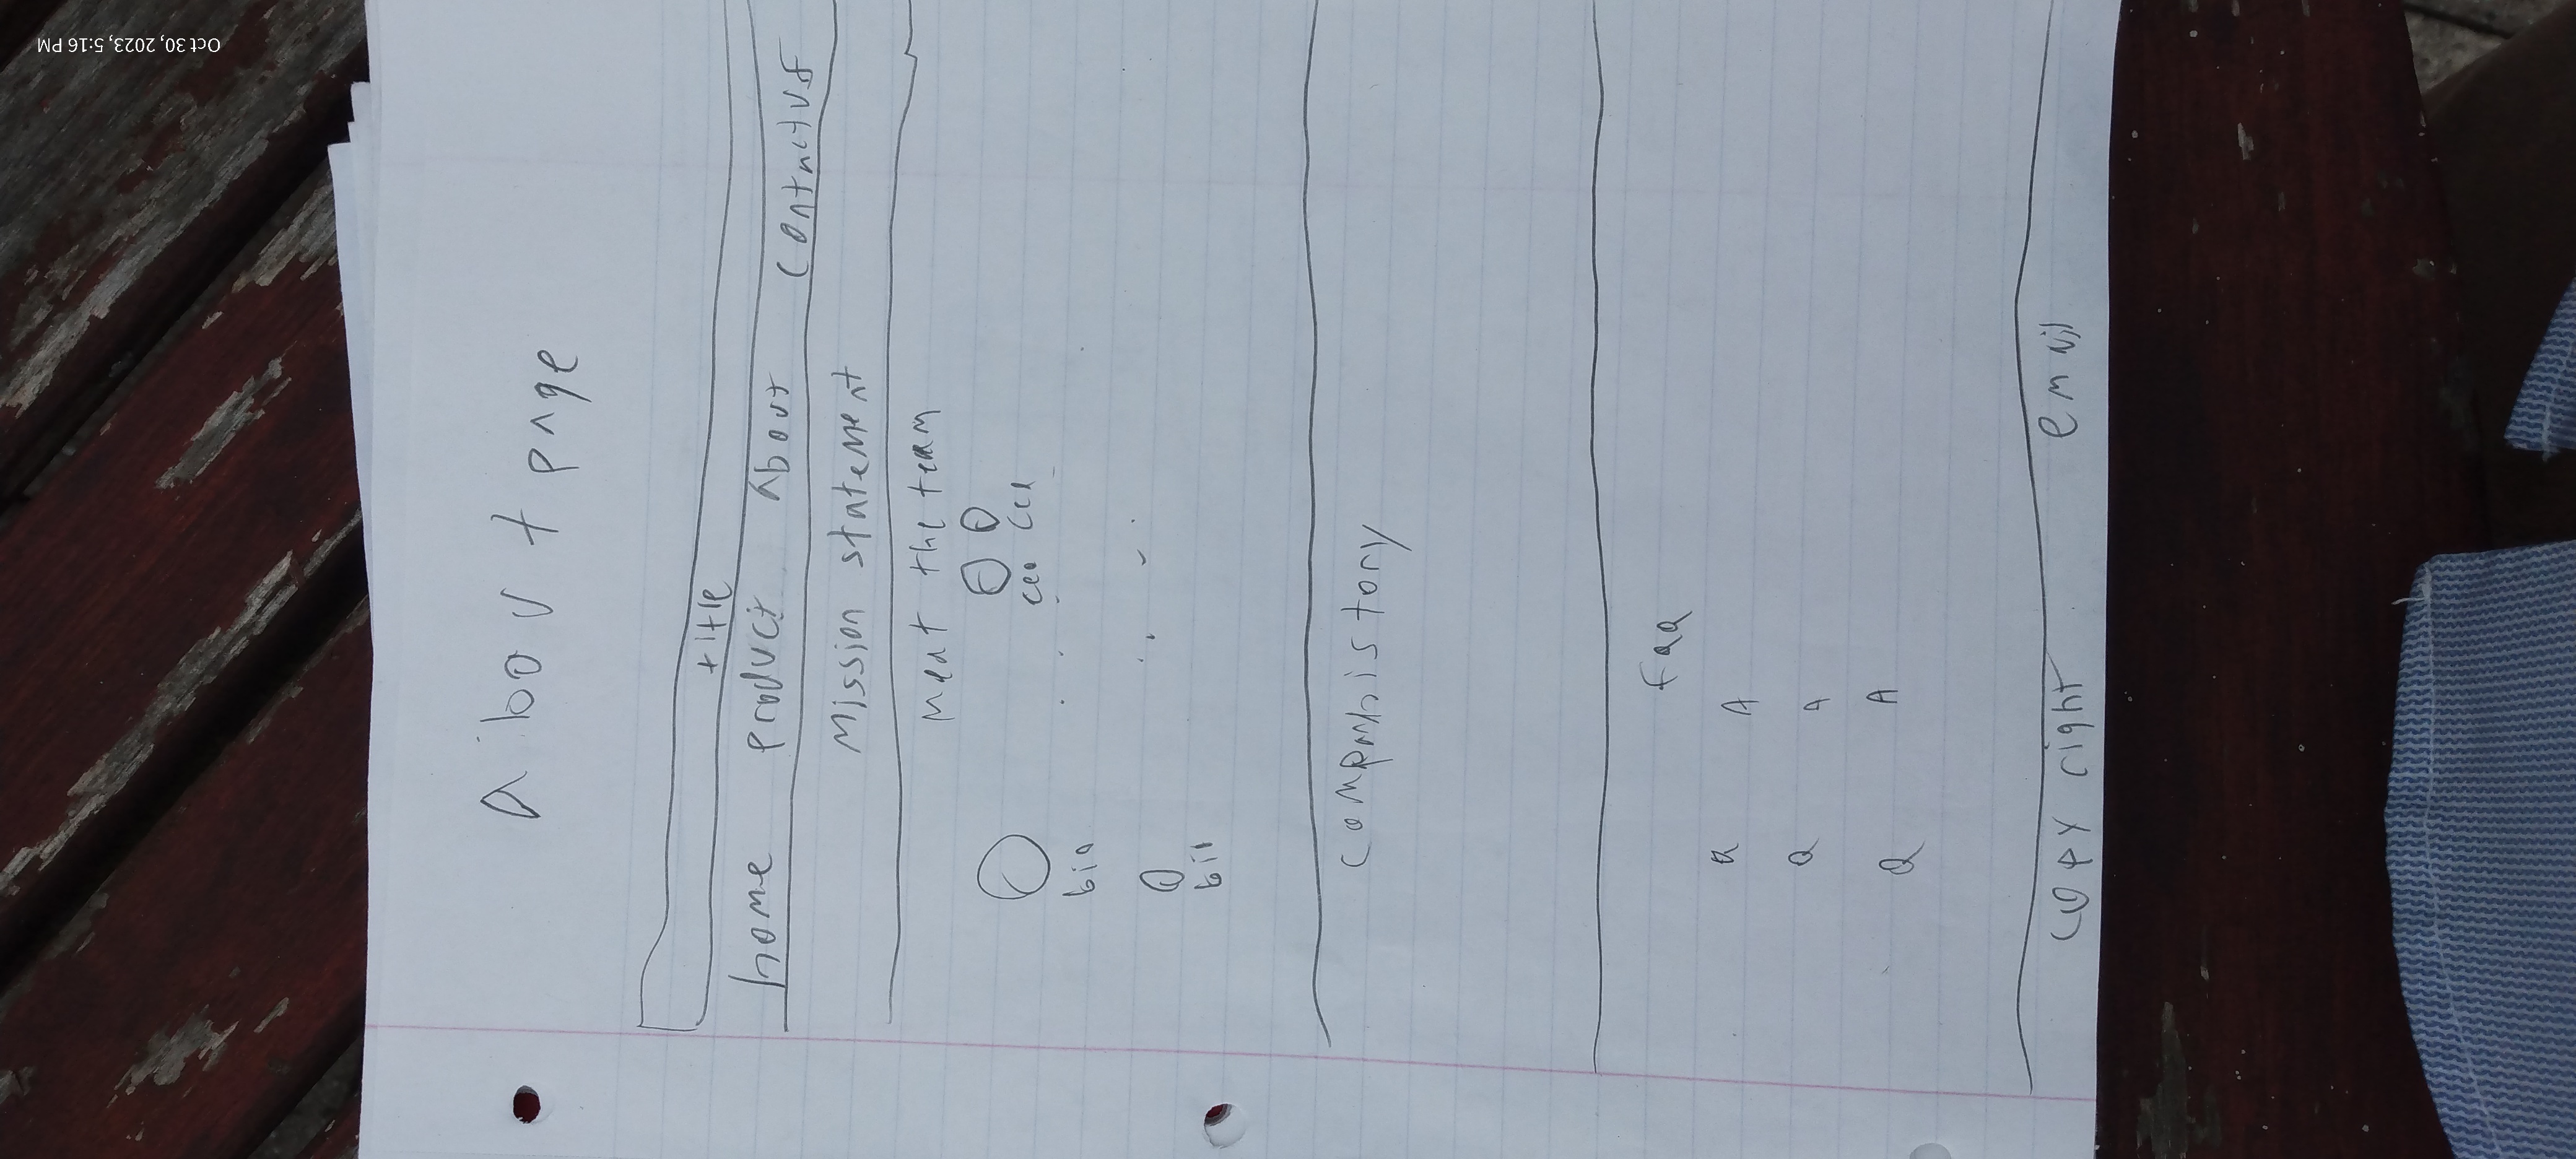 About page
title
home product About Contactus
Mission statement
meat the team
ceo ceo
bio
bio
Companhistory
Faq
Q A
Q A
Q A
copyright email
Oct 30, 2023, 5:16 PM